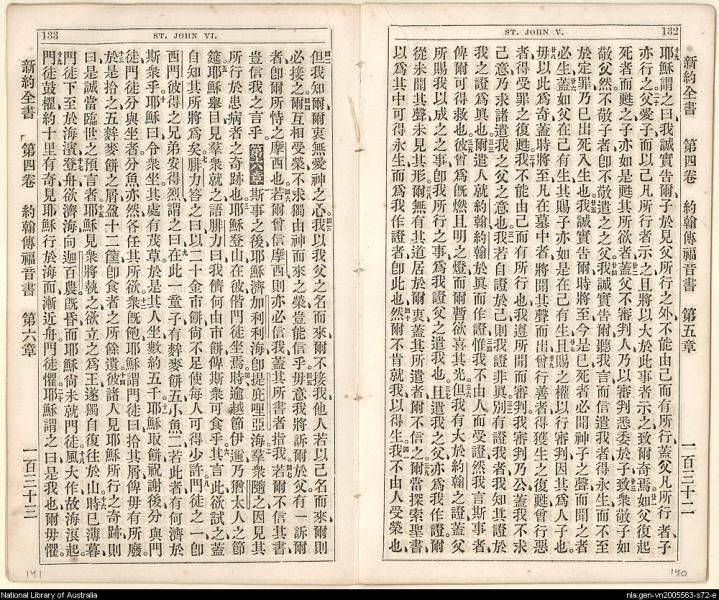 132
ST. JOHN V.
新約全書 第四卷 約翰傳福音書 第五章 一百三十二
耶穌謂之曰我誠實告爾子於見父所行之外不能由己而有所行蓋父凡所行者子
亦行之父愛子而以己凡所行者示之且將以大於此事者示之致爾奇焉如父復起
死者而甦之子亦如是甦其所欲者蓋父不審判人乃以審判悉委於子致衆敬子如
敬父然不敬子者卽不敬遣之之父我誠實告爾聽我言而信遣我者得永生而不至
於定罪乃已出死入生也我誠實告爾時將至今是已死者必聞神子之聲而聞之者
必生蓋如父在己有生其賜子亦如是在己有生且賜之權以行審判因其爲人子也
毋以此爲奇蓋時將至凡在墓中者將聞其聲而出曾行善者得獲生之復甦曾行惡
者得受罪之復甦我不能由己而有所行也我遵所聞而審判我審判乃公蓋我不求
己意乃求諸遣我之父之意也我若自證於己則我證非眞別有證我者我知其證於
我之證爲眞也爾遣人就約翰約翰於眞而作證惟我不由人而受證然我言斯事者
俾爾可得救也彼曾爲旣燃且明之燈而爾暫欲喜其光但我有大於約翰之證蓋父
所賜我以成之之事卽我所行之事爲我證父之遣我也且遣我之父亦爲我作證爾
從未聞其聲未見其形爾無有其道居於爾衷蓋其所遣者爾不信之爾當探索聖書
以爲其中可得永生而爲我作證者卽此也然爾不肯就我以得生我不由人受榮也
133
ST. JOHN VI.
但我知爾爾衷無愛神之心我以我父之名而來爾不接我他人若以己名而來爾則
必接之爾互相受榮不求獨由神而來之榮豈能信乎毋意我將訴爾於父有一訴爾
者卽爾所恃之摩西也若爾曾信摩西則亦必信我蓋其所書者指我若爾不信其書
豈信我之言乎 第六章 斯事之後耶穌濟加利利海卽提庇哩亞海羣衆隨之因見其
所行於患病者之奇跡也耶穌登山在彼偕門徒坐焉時逾越節伊邇乃猶太人之節
筵耶穌舉目見羣衆就之語腓力曰我儕何由市餅俾斯衆可食乎其言此欲試之蓋
自知其所將爲矣腓力答之曰以二十金市餅尙不足使每人可得少許門徒之一卽
西門彼得之兄弟安得烈謂之曰在此一童子有麰麥餅五小魚二若此者有何濟於
斯衆乎耶穌曰令衆坐其處有茂草於是其人坐數約五千耶穌取餅祝謝後分與門
徒門徒分與坐者分魚亦然各任其所欲衆旣飽耶穌謂門徒曰拾其屑俾毋有所廢
於是拾之五麰麥餅之屑盈十二筐卽食者之所餘遺彼諸人見耶穌所行之奇跡則
曰是誠當臨世之預言者耶穌見衆將執之欲立之爲王遂獨自復往於山時已薄暮
門徒下至於海濱登舟欲濟海向迦百農旣昏而耶穌尙未就門徒風大作故海浪起
門徒鼓櫂約十里有奇見耶穌行於海而漸近舟門徒懼耶穌謂之曰是我也爾毋懼
新約全書 第四卷 約翰傳福音書 第六章 一百三十三
141
140
National Library of Australia
nla.gen-vn2005563-s72-e